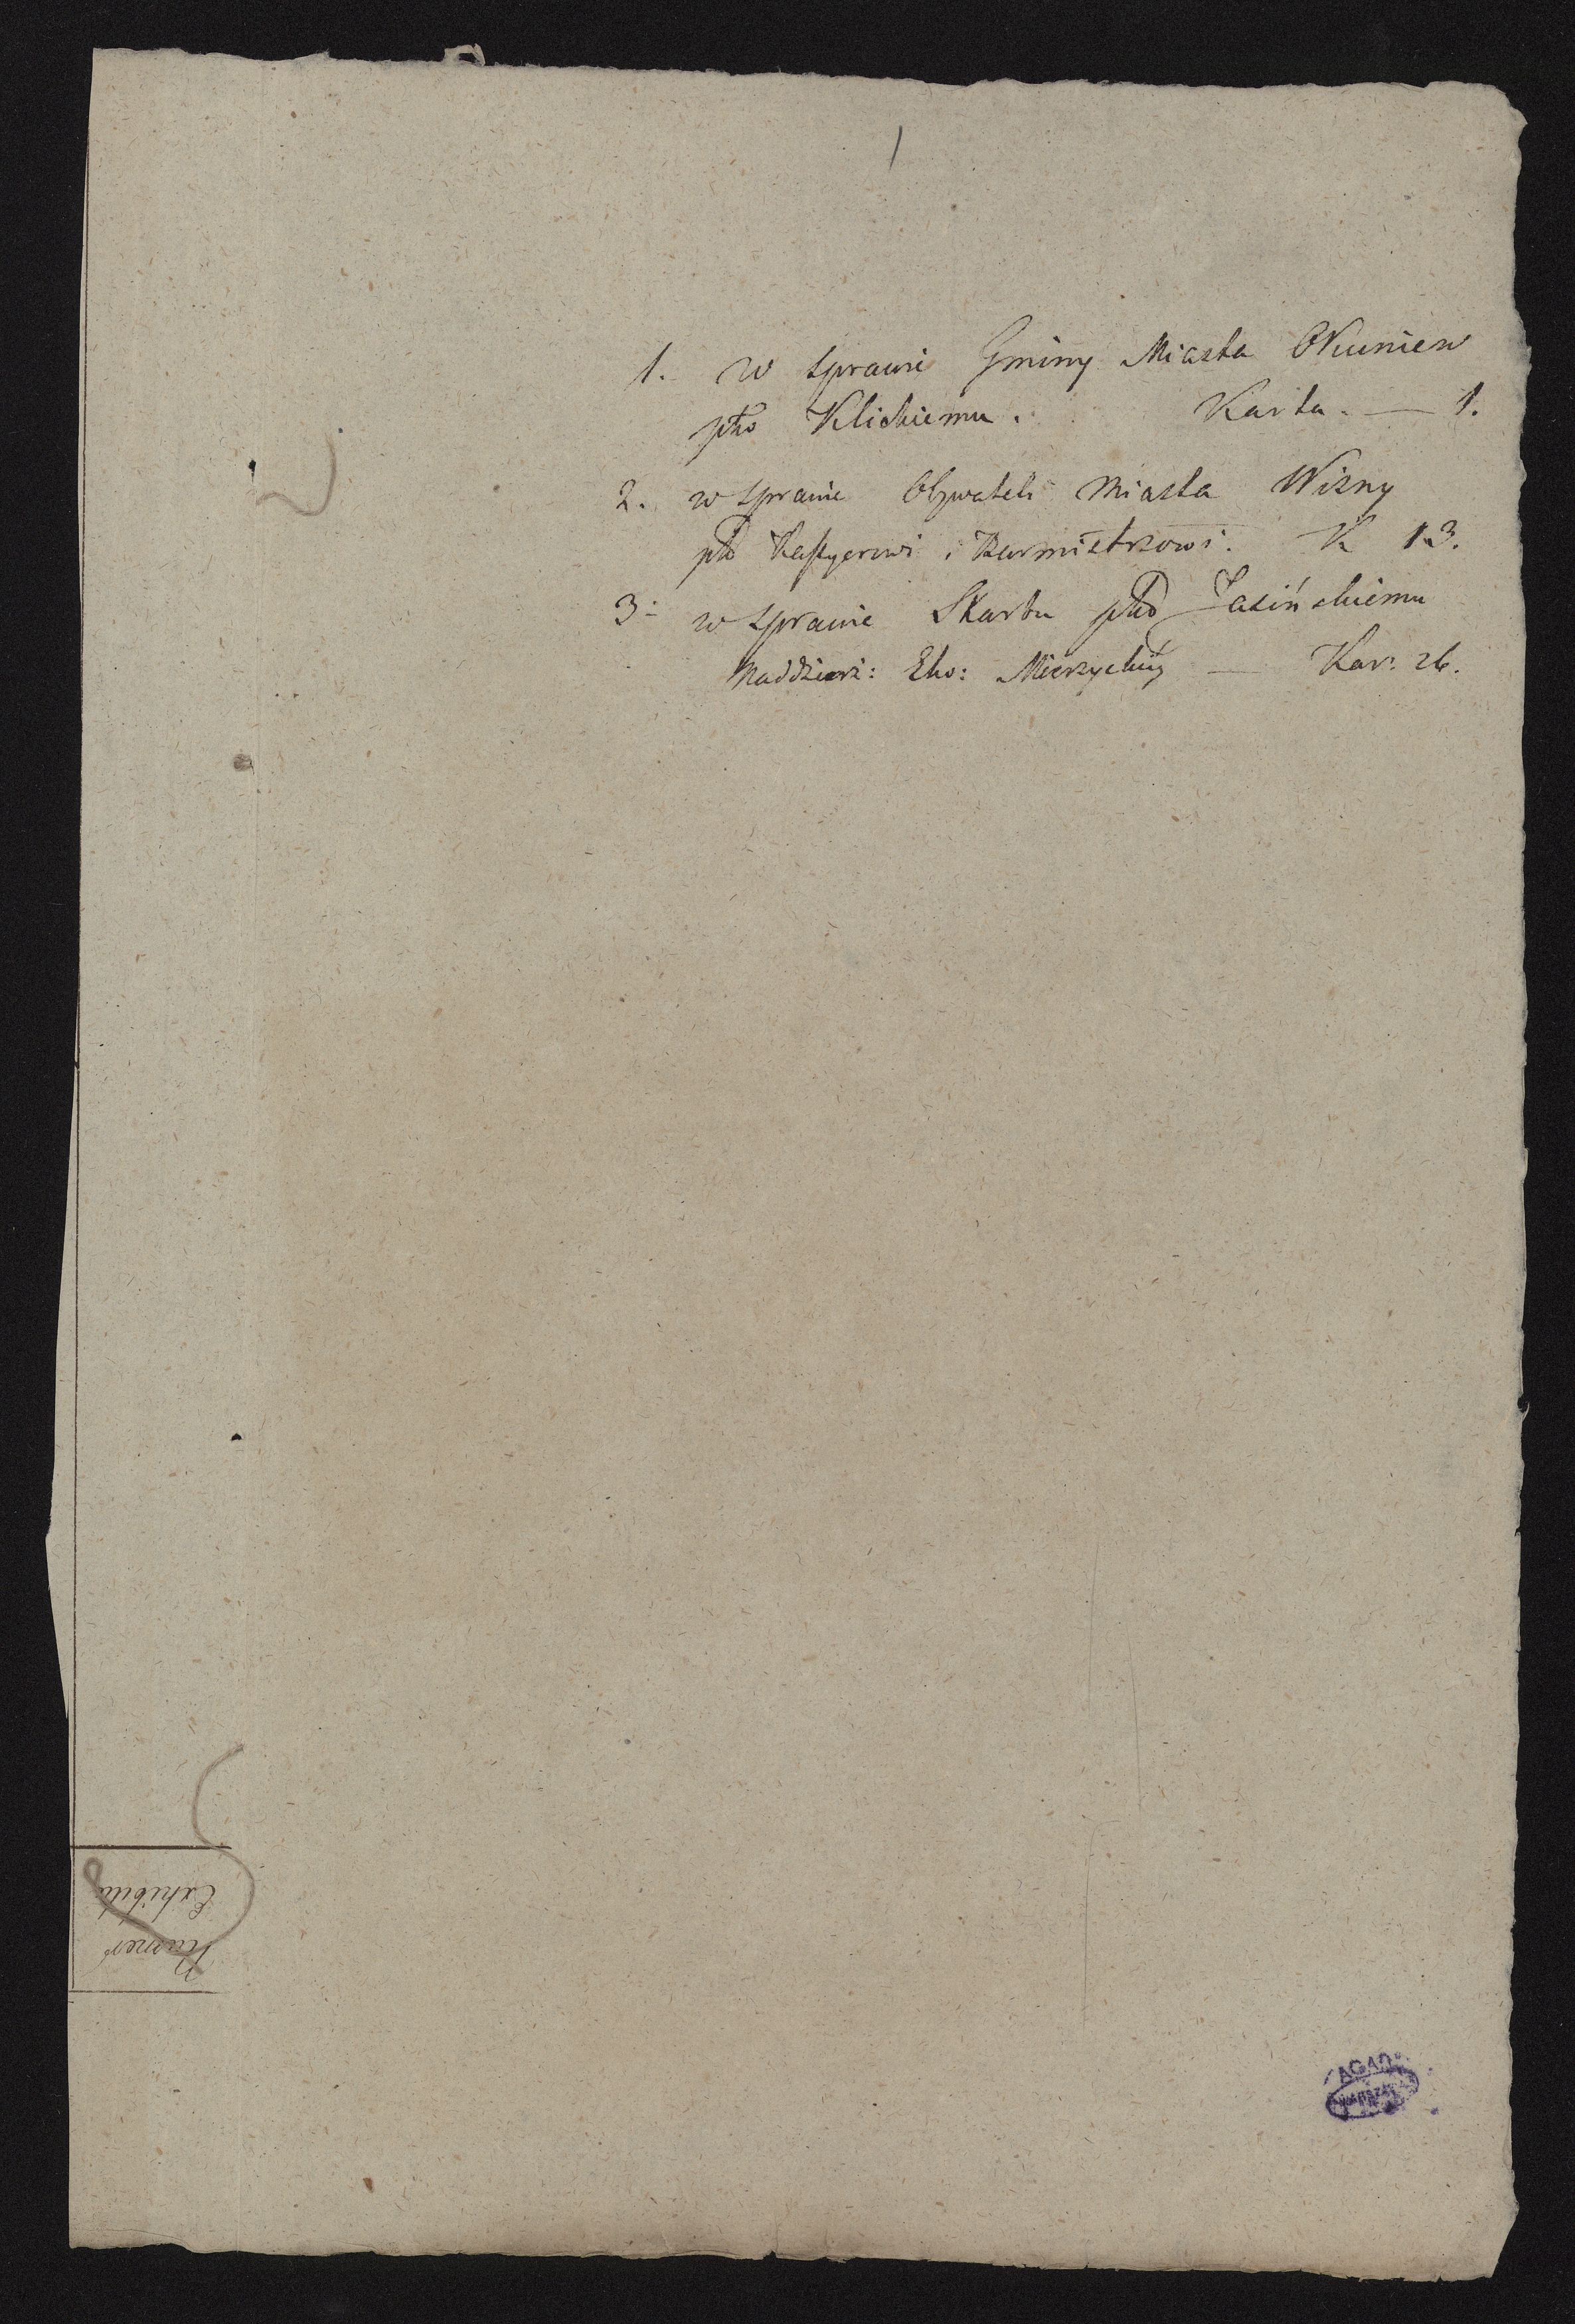 1
1. w sprawie Gminy Miasta Okuniew
pko Klickiemu. Karta. — 1.
2. w sprawie Obywateli Miasta Wizny
pko Kassyerowi i Burmistrzowi. K 13.
3. w sprawie Skarbu pko Jasińskiemu
Naddzierż: Eko: — Kar: 26.
Numer
Exhibiti
AGAD